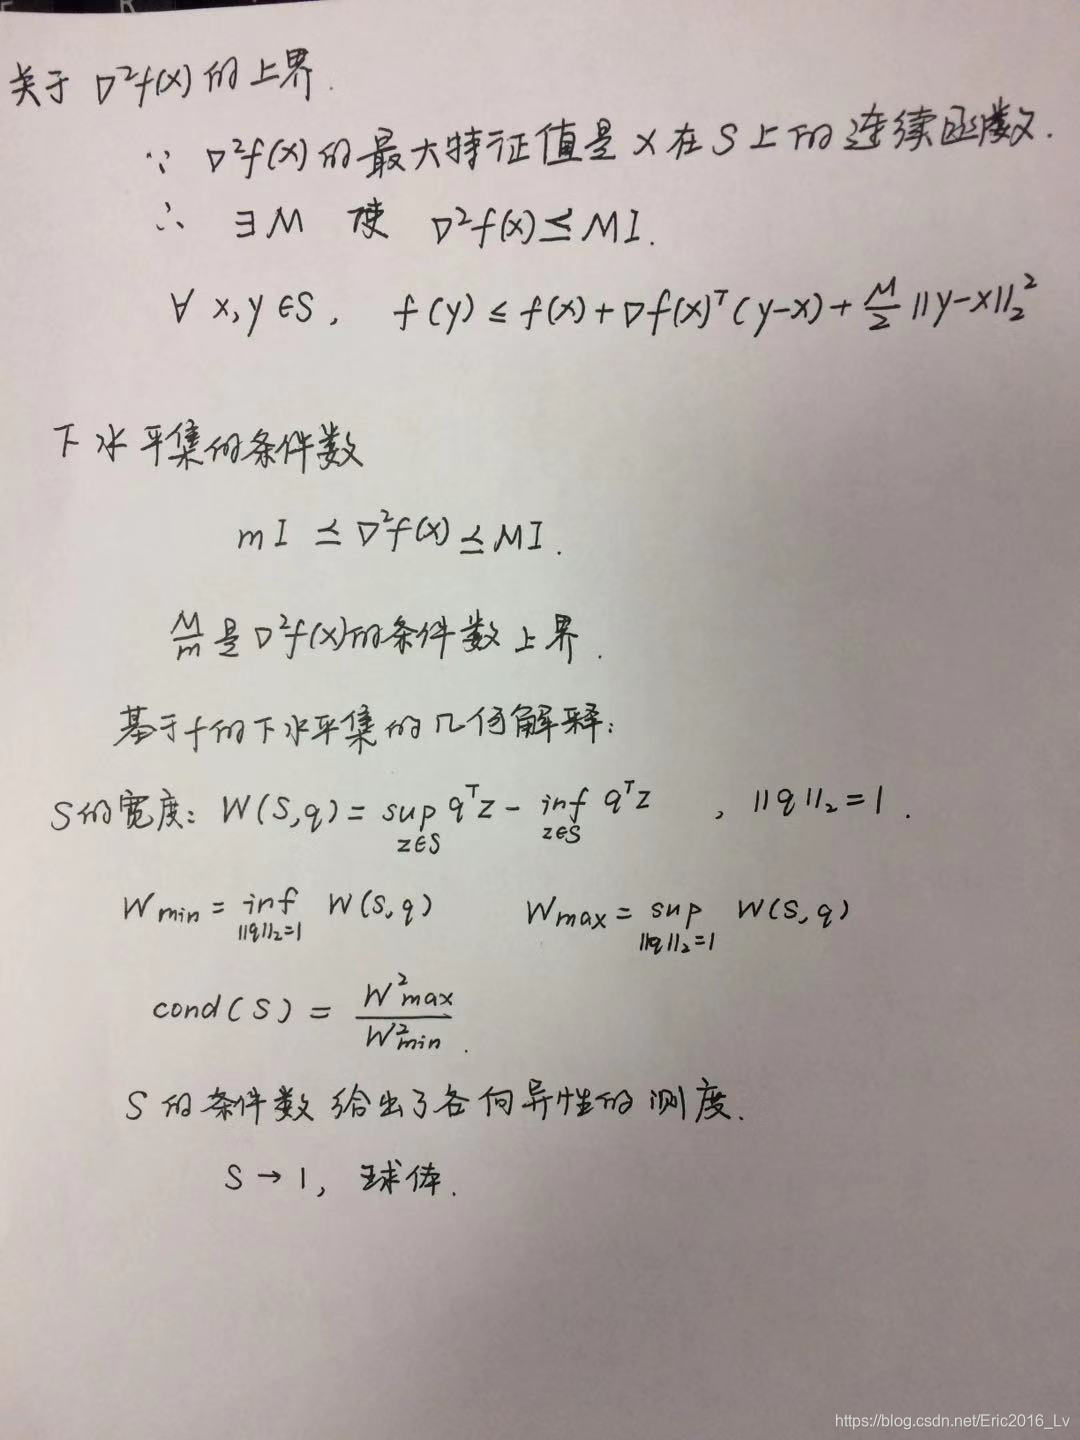 关于 ∇²f(x) 的上界.
∵ ∇²f(x) 的最大特征值是 x 在 S 上的连续函数.
∴ ∃M 使 ∇²f(x) ⪯ MI.
∀ x,y ∈S, f(y) ≤ f(x) + ∇f(x)ᵀ(y-x) + M/2 ||y-x||₂²
下水平集的条件数
mI ⪯ ∇²f(x) ⪯ MI.
M/m 是 ∇²f(x) 的条件数上界.
基于f的下水平集的几何解释:
S的宽度: W(S,q) = sup_{z∈S} qᵀz - inf_{z∈S} qᵀz , ||q||₂ = 1.
W_min = inf_{||q||₂=1} W(S,q) W_max = sup_{||q||₂=1} W(S,q)
cond(S) = W²_max / W²_min.
S 的条件数给出了各向异性的测度.
S → 1, 球体.
https://blog.csdn.net/Eric2016_Lv